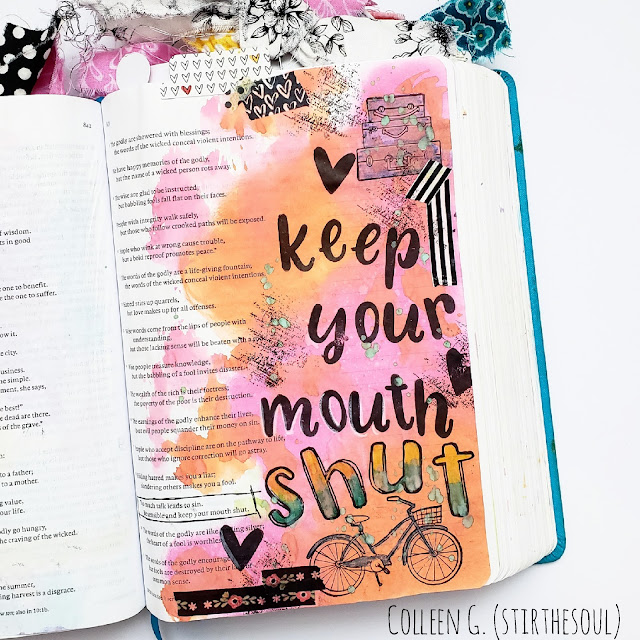 of wisdom.
ts in good
one to benefit.
e the one to suffer.
ow it.
e city.
usiness.
e simple.
ment, she says,
best!"
e dead are there.
s of the grave."
to a father;
to a mother.
ng value.
our life.
odly go hungry,
the craving of the wicked.
he summer,
ng harvest is a disgrace.
also in 10:1b.
The godly are showered with blessings;
the words of the wicked conceal violent intentions.
have happy memories of the godly,
but the name of a wicked person rots away.
wise are glad to be instructed,
but babbling fools fall flat on their faces.
People with integrity walk safely,
but those who follow crooked paths will be exposed.
People who wink at wrong cause trouble,
but a bold reproof promotes peace.
The words of the godly are a life-giving fountain;
the words of the wicked conceal violent intentions.
Hatred stirs up quarrels,
but love makes up for all offenses.
words come from the lips of people with
understanding,
but those lacking sense will be beaten with a
people treasure knowledge,
but the babbling of a fool invites disaster.
The wealth of the rich is their fortress;
the poverty of the poor is their destruction.
The earnings of the godly enhance their lives,
but evil people squander their money on sin.
People who accept discipline are on the pathway to life,
but those who ignore correction will go astray.
Hiding hatred makes you a liar;
slandering others makes you a fool.
Too much talk leads to sin.
Be sensible and keep your mouth shut.
The words of the godly are like sterling silver;
the heart of a fool is worthless
The words of the godly encourage
but fools are destroyed by their lack of
common sense.
keep
your
mouth
shut
Colleen G. (stirthesoul)